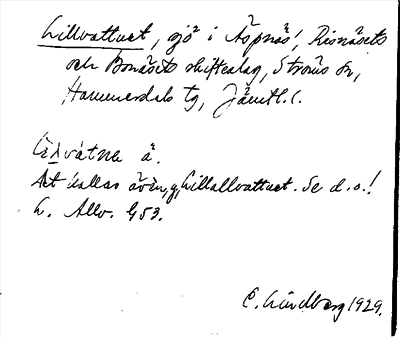 Lillvattnet, sjö i Äspnäs!, Risnäsets
och Bonäsets skifteslag, Ströms sn,
Hammerdals tg, Jämtl. l.
vátna å.
Det kallas även, Lillallvattnet. Se d.o.!
L. Allv. 453.
E. Lundberg 1929.